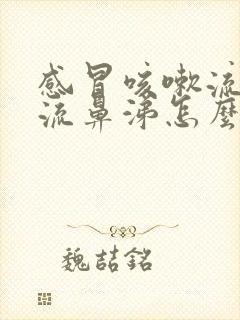 感冒咳嗽流
流鼻涕怎麼
魏喆銘